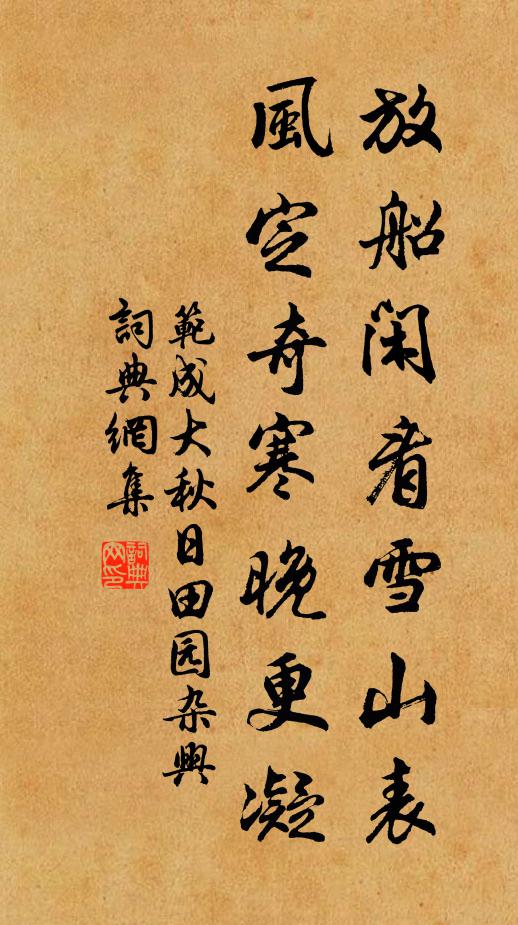 放船閑看雪山表
風定奇寒晚更凝
範成大秋日田园杂興
詞典網集
詞典
网印